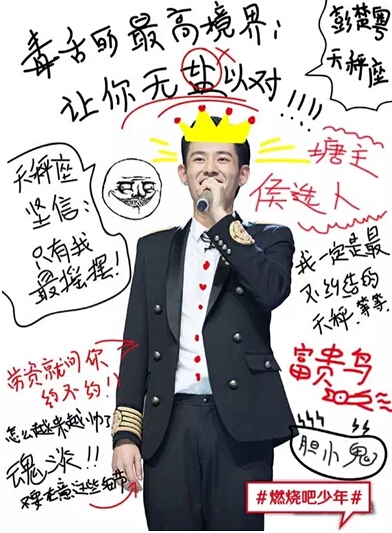 毒舌的最高境界:
让你无盐以对!!!!
彭楚粤
天秤座
天秤座
坚信:
只有我
最摇摆!
塘主
候选人
我一定是最
不纠结的
天秤.等等.
劳资就问你
约不约!!
怎么越来越帅了
魂淡!!
不要在意这些细节
富贵鸟
胆小鬼
#燃烧吧少年#